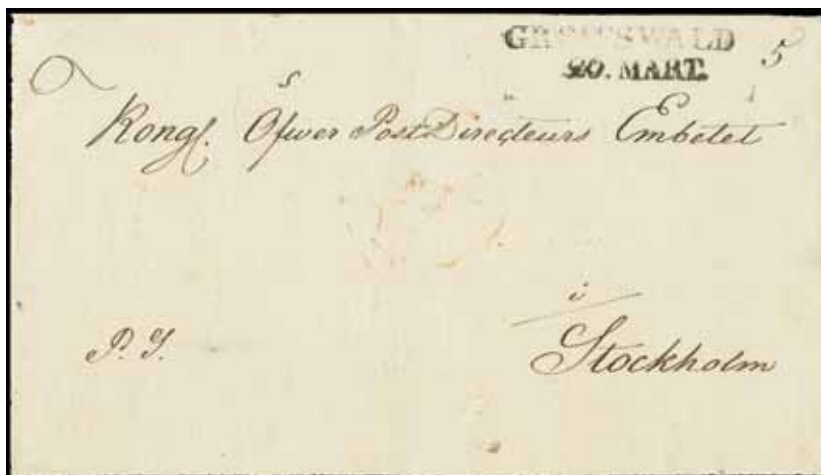 GREIFSWALD
20. MART.
5
s
Kongl. Öfwer PostDirecteurs Embetet
i
Stockholm
P. S.